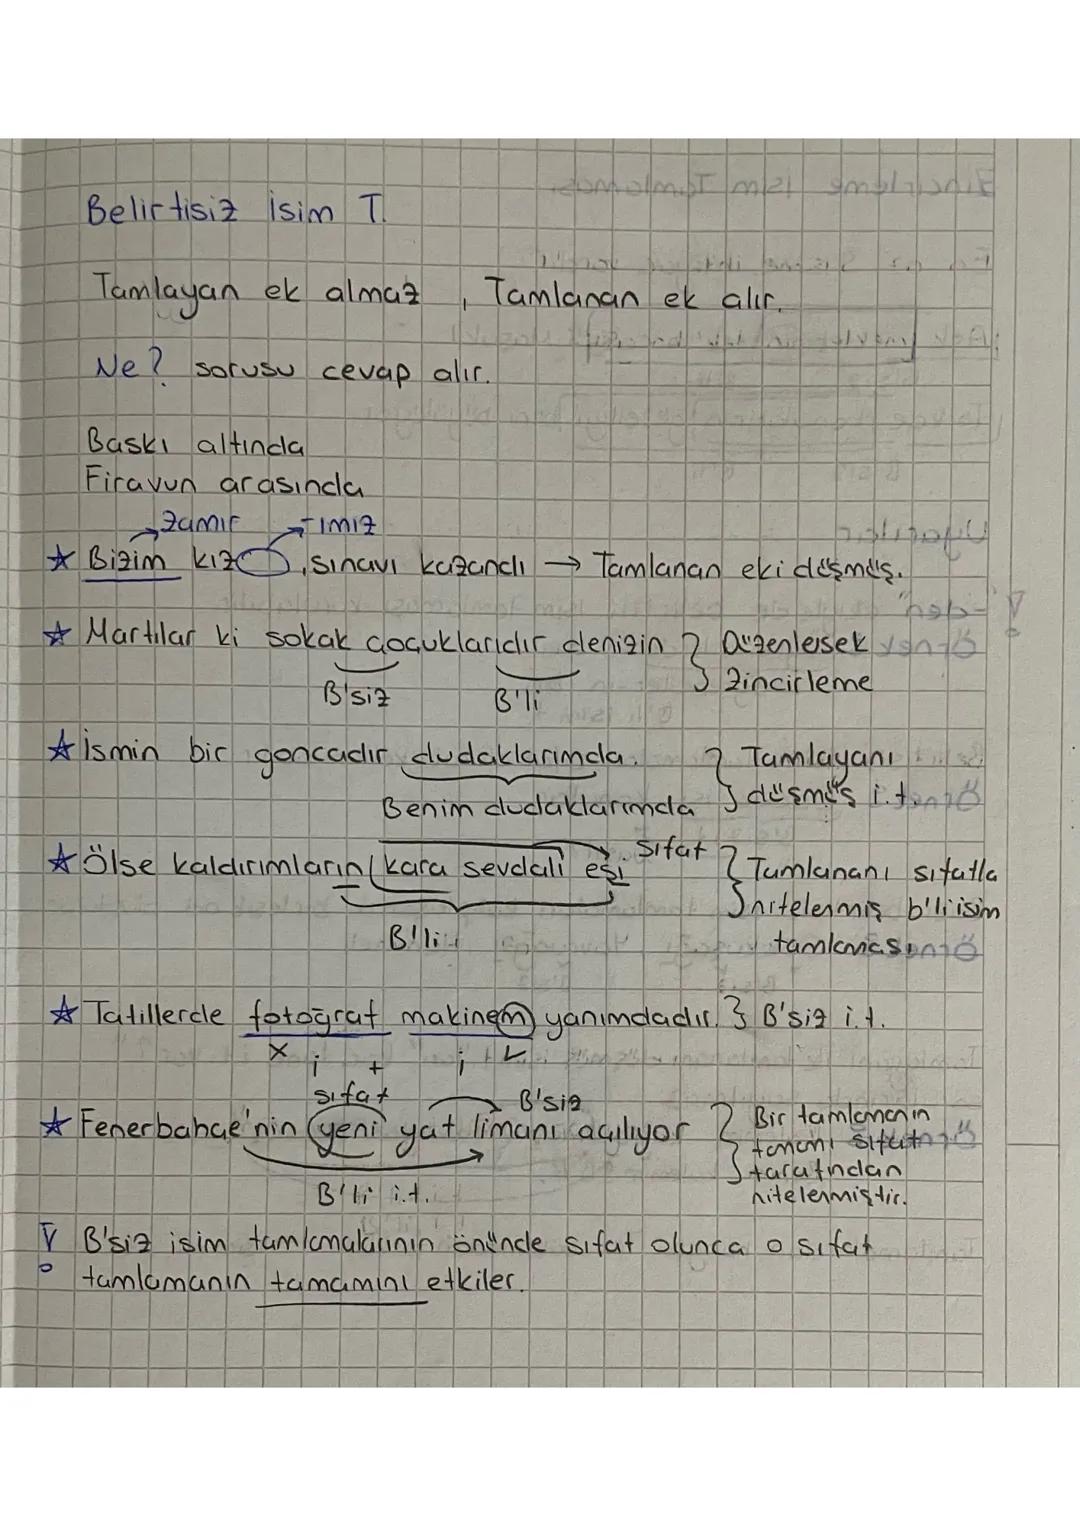 Belirtisiz İsim T.
Tamlayan ek almaz , Tamlanan ek alır.
Ne? sorusu cevap alır.
Baskı altında
Firavun arasında
zamir -ımız
☆ Bizim kız , sınavı kazandı → Tamlanan eki düşmüş.
☆ Martılar ki sokak çocuklarıdır denizin } Düzenlersek
B'siz B'li zincirleme
☆ İsmin bir goncadır dudaklarımda. } Tamlayanı
Benim dudaklarımda düşmüş i.t.
sıfat
☆ Ölse kaldırımların (kara sevdalı eşi } Tamlananı sıfatla
nitelenmiş b'li isim
B'li tamlaması
☆ Tatillerde fotoğraf makinem yanımdadır. } B'siz i.t.
x i + i ✓
sıfat B'siz
☆ Fenerbahçe'nin (yeni yat limanı açılıyor } Bir tamlamanın
tamamı sıfat
tarafından
B'li i.t. nitelenmiştir.
! B'siz isim tamlamalarının önünde sıfat olunca o sıfat
tamlamanın tamamını etkiler.